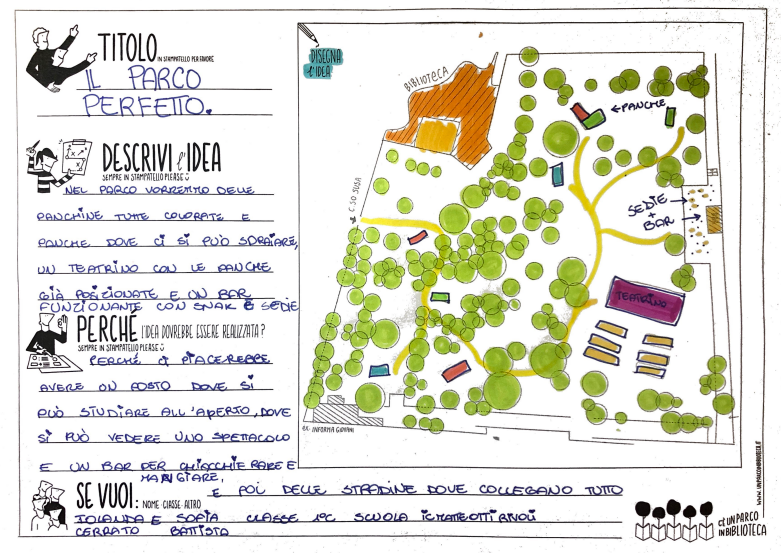 TITOLO IN STAMPATELLO PER FAVORE
IL PARCO
PERFETTO.
DESCRIVI l'IDEA
SEMPRE IN STAMPATELLO PLEASE
NEL PARCO VORREMMO DELLE
PANCHINE TUTTE COLORATE E
PANCHE DOVE CI SI PUÒ SDRAIARE,
UN TEATRINO CON LE PANCHE
GIÀ POSIZIONATE E UN BAR
FUNZIONANTE CON SNAK E SEDIE
PERCHÉ l'IDEA DOVREBBE ESSERE REALIZZATA?
SEMPRE IN STAMPATELLO PLEASE
PERCHÉ CI PIACEREBBE
AVERE UN POSTO DOVE SI
PUÒ STUDIARE ALL'APERTO, DOVE
SI PUÒ VEDERE UNO SPETTACOLO
E UN BAR PER CHIACCHIERARE E
MANGIARE,
E POI DELLE STRADINE DOVE COLLEGANO TUTTO
SE VUOI: NOME CLASSE ALTRO
IOLANDA E SOFIA CLASSE 1°C SCUOLA IC MATTEOTTI RIVOLI
CERRATO BATTISTA
DISEGNA
l'IDEA
BIBLIOTECA
PANCHE
C.SO SUSA
SEDIE
+
BAR
TEATRINO
EX INFORMA GIOVANI
WWW.UNPARCOINBIBLIOTECA.IT
C'È UN PARCO
IN BIBLIOTECA